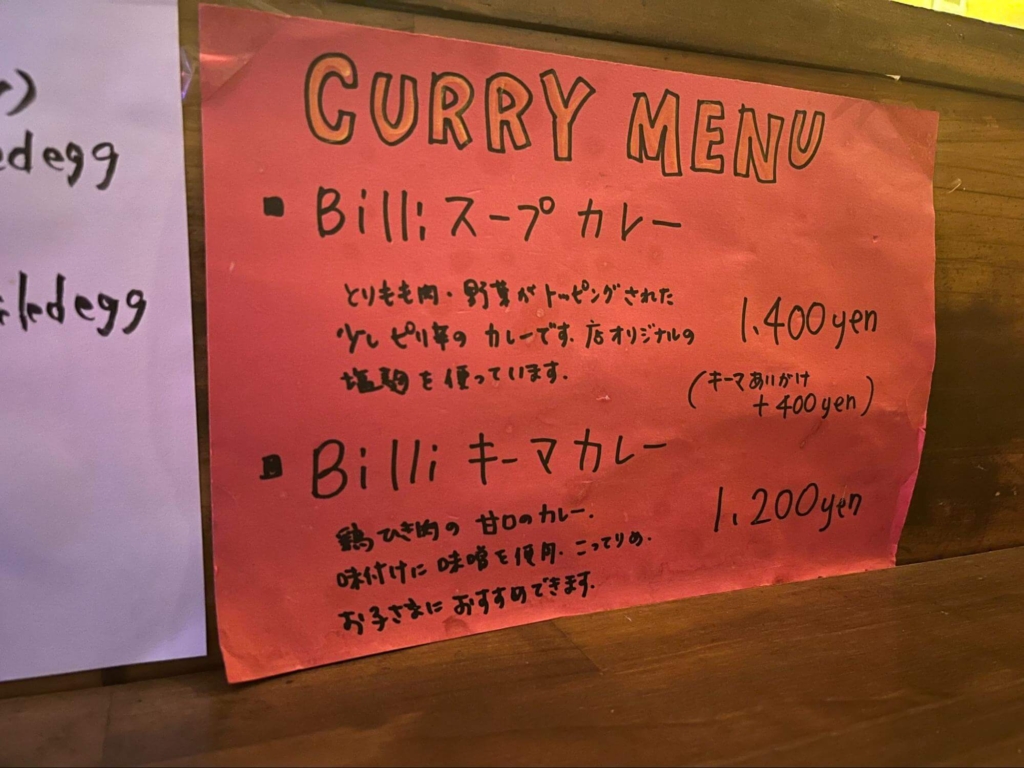 edegg
ledegg
CURRY MENU
■ Billi スープカレー
とりもも肉・野菜がトッピングされた
少しピリ辛の カレーです. 店オリジナルの
塩麹を使っています.
1.400yen
(キーマあいがけ
+400yen)
■ Billi キーマカレー
鶏ひき肉の 甘口のカレー.
味付けに 味噌を使用. こってりめ.
お子さまに おすすめできます.
1.200yen